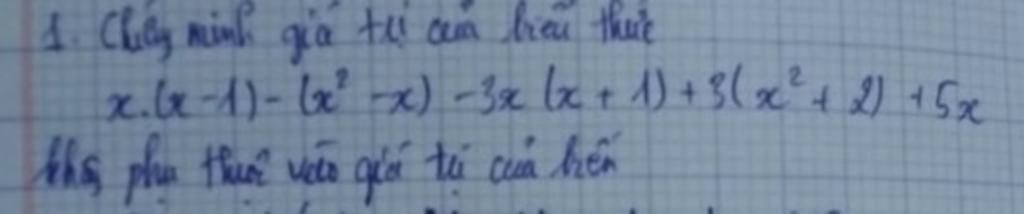 1. Chứng minh giá trị của biểu thức
x.(x-1)-(x²-x)-3x(x+1)+3(x²+2)+5x
khg phụ thuộc vào giá trị của biến